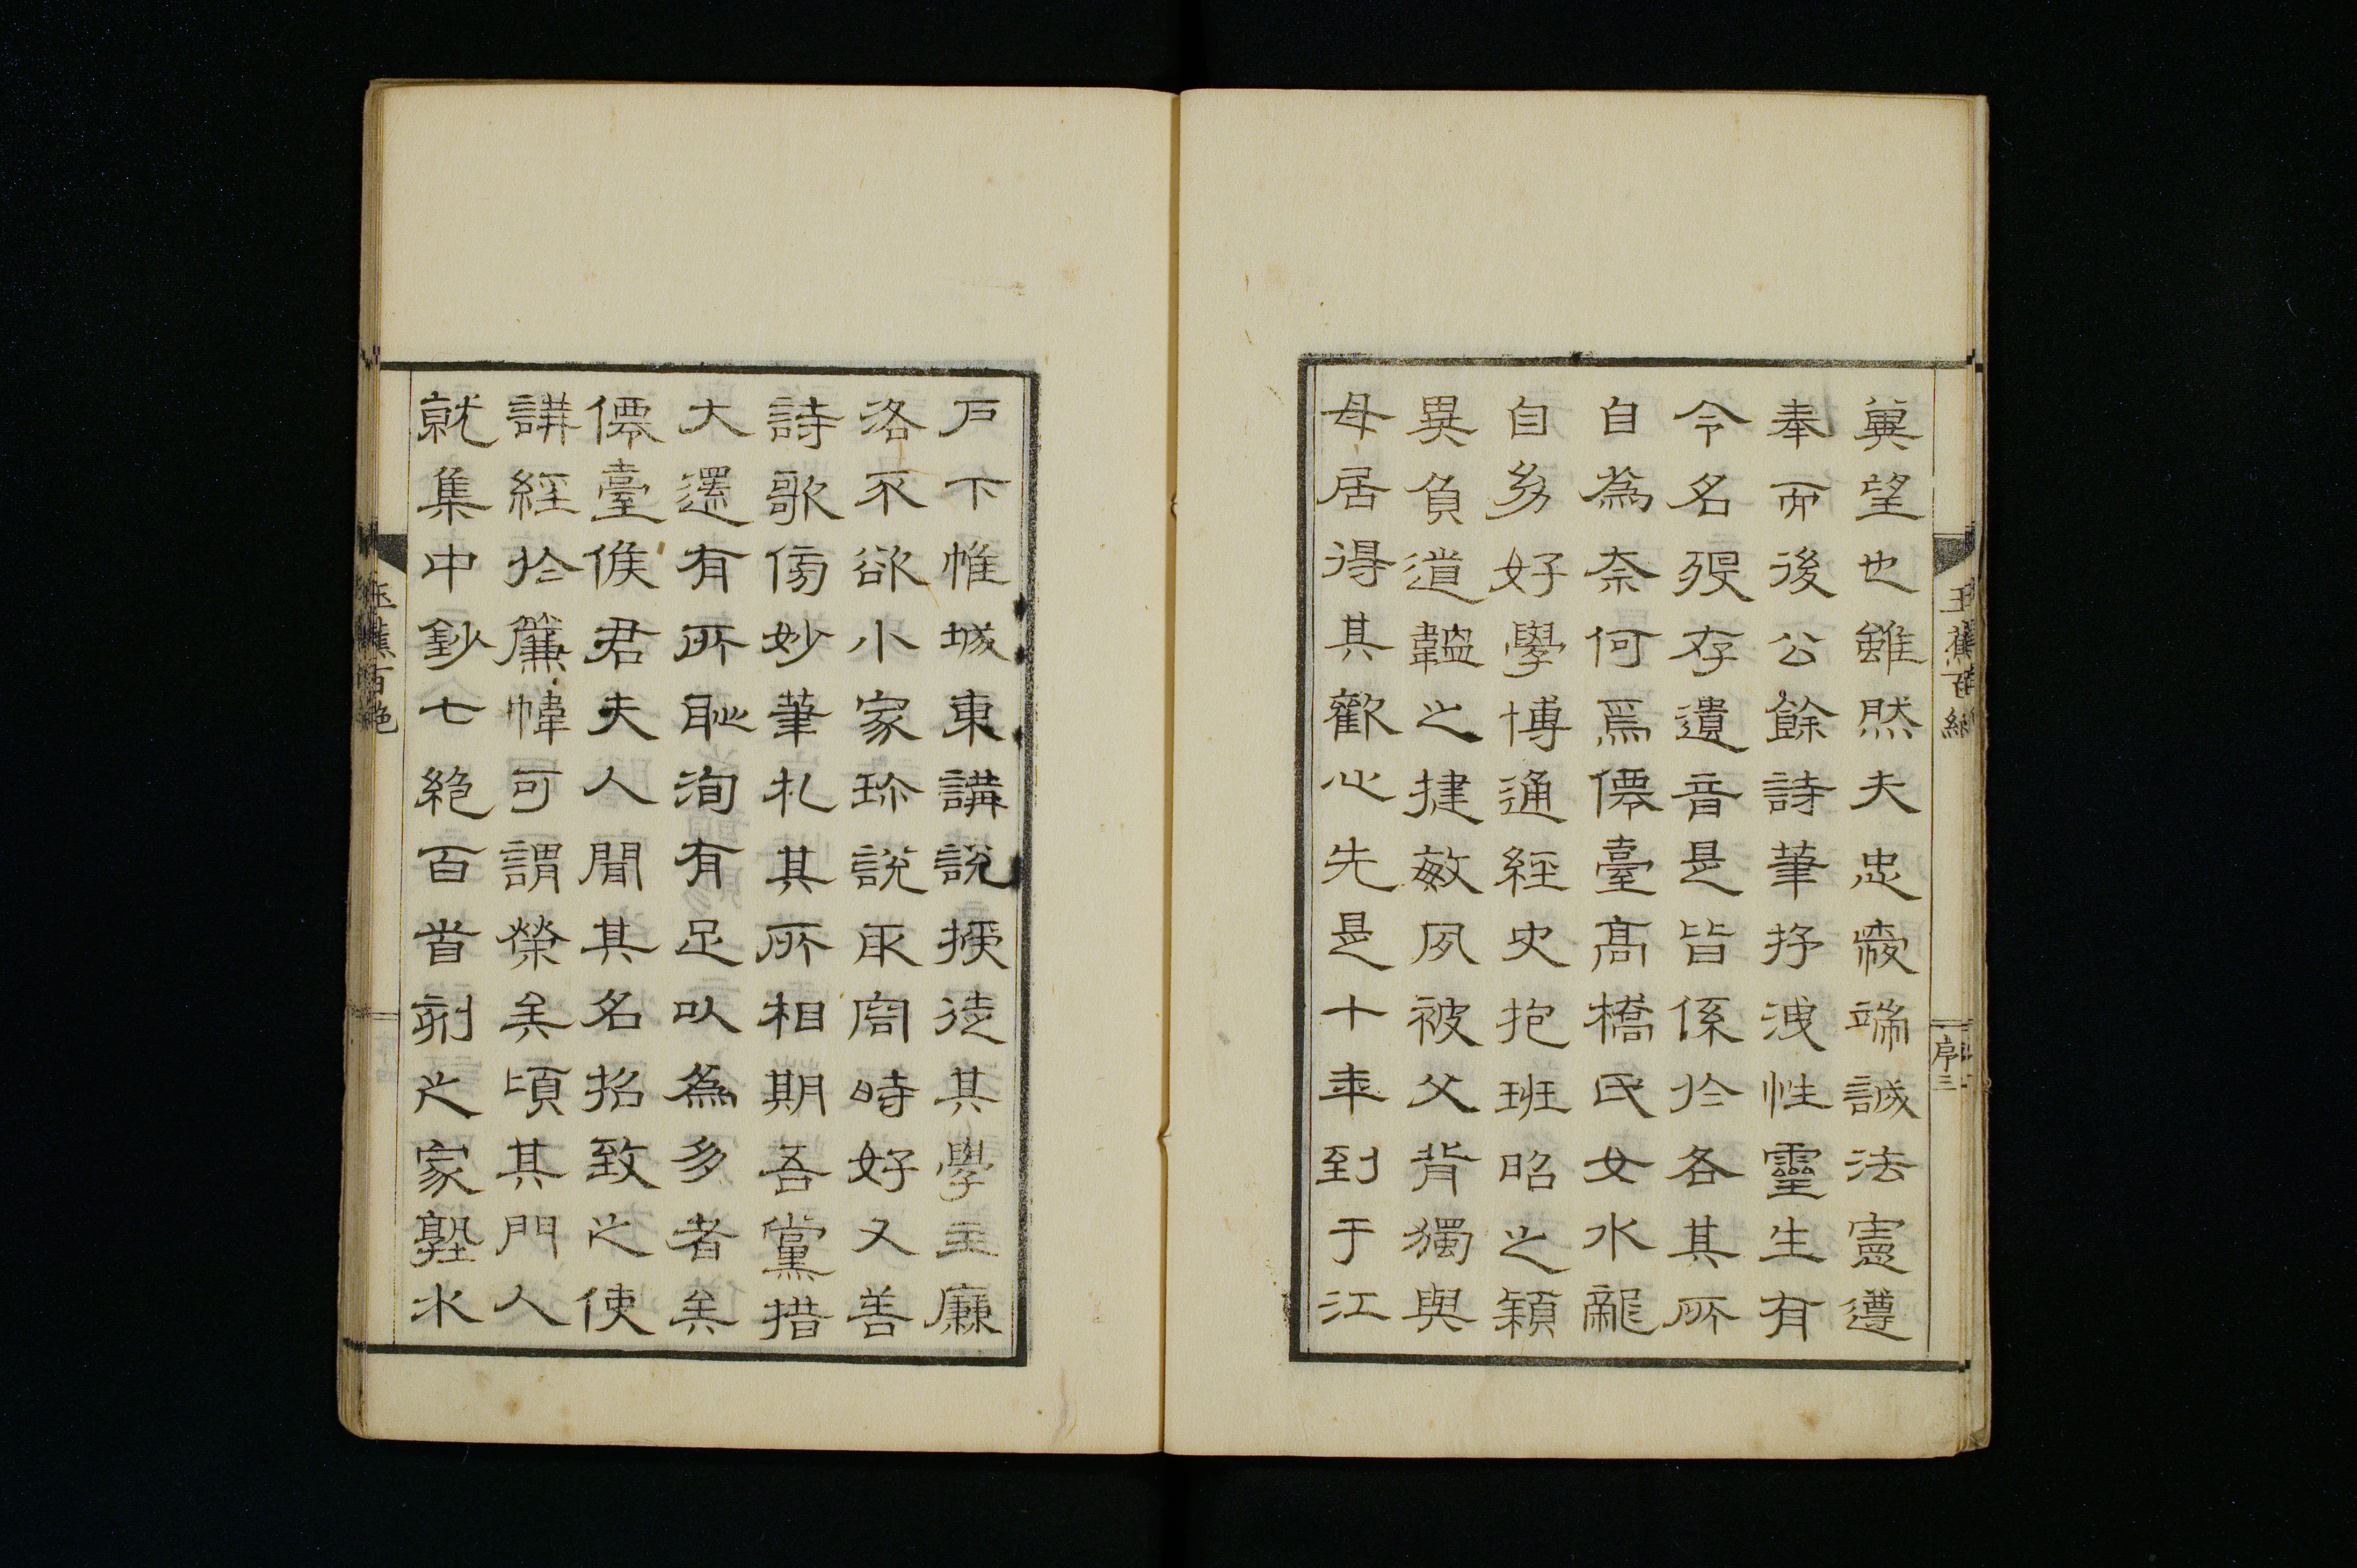 冀望也雖然夫忠踆端誠法憲遵
奉而後公餘詩筆抒洩性靈生有
令名歿存遺音是皆係於各其所
自為奈何焉僊臺高橋氏女水龍
自幼好學博通經史抱班昭之穎
異負道韞之捷敏夙被父背獨與
母居得其歡心先是十年到于江
戶下帷城東講說授徒其學主廉
洛不欲小家珎說取悅時好又善
詩歌傍妙筆札其所相期吾黨措
大還有所恥洵有足以為多者矣
僊臺侯君夫人聞其名招致之使
講經於簾幃可謂榮矣頃其門人
就集中鈔七絕百首刻之家塾水
玉蕉百絕
序三
玉蕉百絕